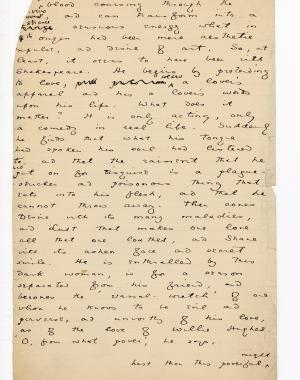 blood coursing through the
and can transform into a
sensuous energy what in
its origin had been mere aesthetic
impulse, and desire of art. So, at
least, it seems to have been with
Shakespeare. He begins by pretending
to love, wears a lover's
apparel and has a lover's words
upon his lips. What does it
matter? It is only acting, only
a comedy in real life. Suddenly
he finds that what his tongue
had spoken his soul had listened
to, and that the raiment that he
put on for disguise is a plague-
stricken and poisonous thing that
eats into his flesh, and that he
cannot throw away. Then comes
Desire with its many maladies,
and Lust that makes one love
all that one loathes, and Shame
with its ashen face and secret
smile. He is enthralled by this
dark woman, is for a season
separated from his friend, and
becomes the 'vassal-wretch' of one
whom he knows to be evil and
perverse, and unworthy of his love,
as of the love of Willie Hughes.
'O, from what power,' he says,
might
hast thou this powerful